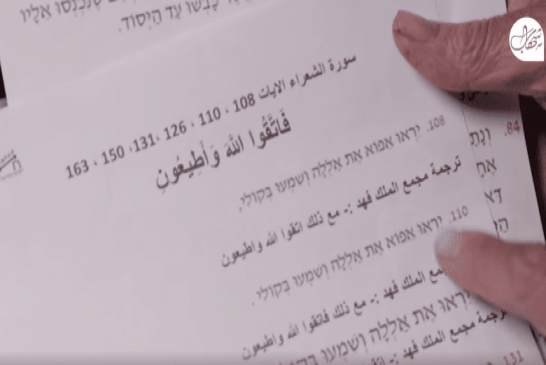 כָּבְשׁוּ עַד הַיְסוֹד.
سورة الشعراء الايات 108 ، 110 ، 126 ،131 ، 150 ، 163
فَاتَّقُوا اللَّهَ وَأَطِيعُونِ
108. יִרְאוּ אֵפוֹא אֶת אַלְלָהּ וְשִׁמְעוּ בְּקוֹלִי.
ترجمة مجمع الملك فهد :- مع ذلك اتقوا الله واطيعون
110. יִרְאוּ אֵפוֹא אֶת אַלְלָהּ וְשִׁמְעוּ בְּקוֹלִי.
مجمع الملك فهد :- مع ذلك فاتقوا الله واطيعون
יִרְאוּ אֶת אַלְלָהּ וְשִׁמְעוּ
ترجمة مجمع الملك فهد :-
131
84.